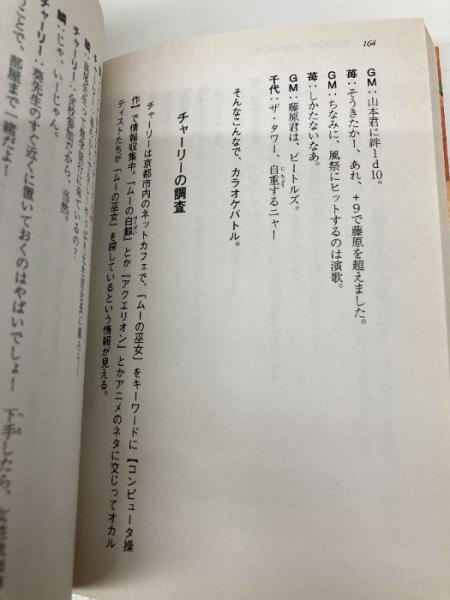 164
GM：山本君に絆1d10。
苺：そうきたかー、あれ、+9で藤原を超えました。
GM：ちなみに、風祭にヒットするのは演歌。
苺：しかたないなあ。
GM：藤原君は、ビートルズ。
千代：ザ・タワー、自重するニャー
じちょう
そんなこんなで、カラオケバトル。
チャーリーの調査
チャーリーは京都市内のネットカフェで、「ムーの巫女」をキーワードに【コンピュータ操
作】で情報収集中。「ムーの白鯨」とか「アクエリオン」とかアニメのネタに交じってオカル
ティストたちが「ムーの巫女」を探しているという情報が見える。
チャーリー：全校参加だから、当然。
鯖：じゃ、いーじゃん。
チャーリー：葵先生のすぐ近くに置いておくのはやばいでしょ！ 下手したら、
ことで、部屋まで一緒だよ！